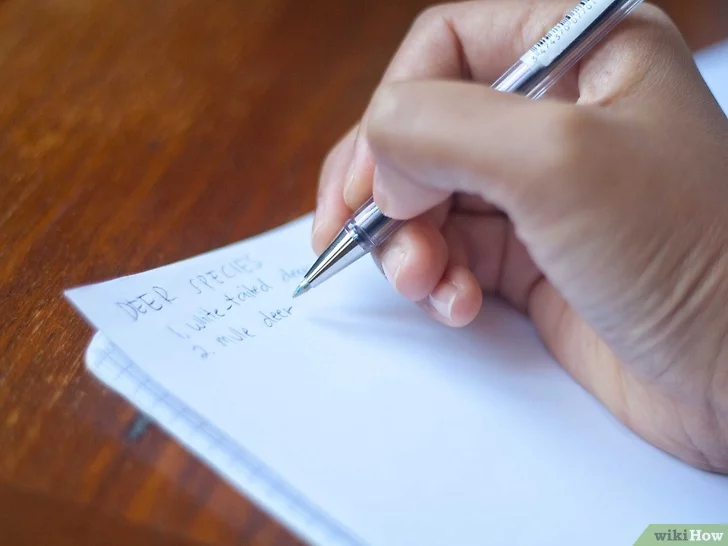 DEER SPECIES
1. white-tailed deer
2. mule deer
wikiHow